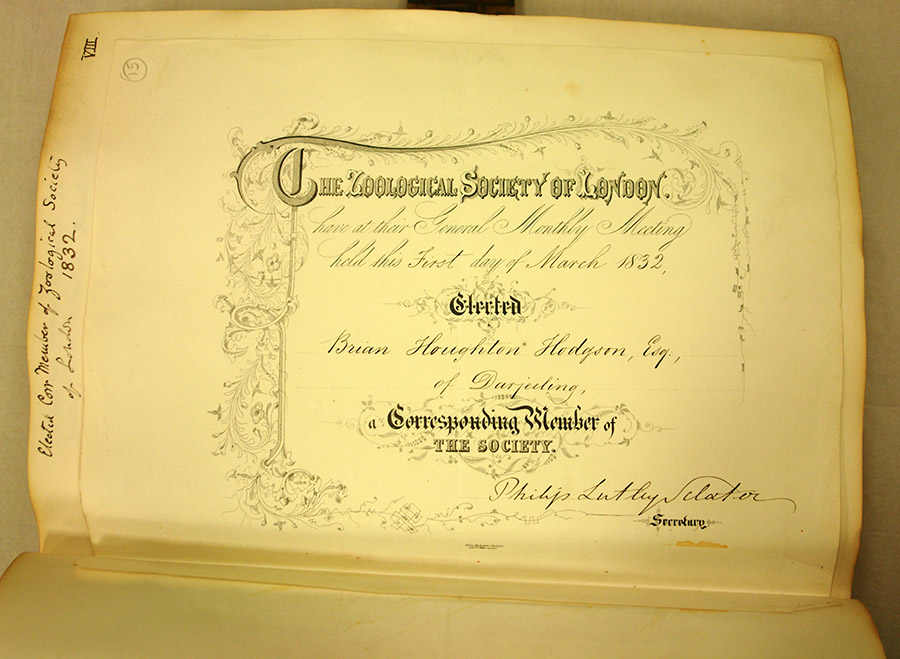 VIII.
15
Elected Corr Member of Zoological Society
of London 1832.
THE ZOOLOGICAL SOCIETY OF LONDON.
have at their General Monthly Meeting
held this First day of March 1832,
Elected
Brian Houghton Hodgson, Esq.,
of Darjeeling,
a Corresponding Member of
THE SOCIETY.
Philip Lutley Sclater
Secretary